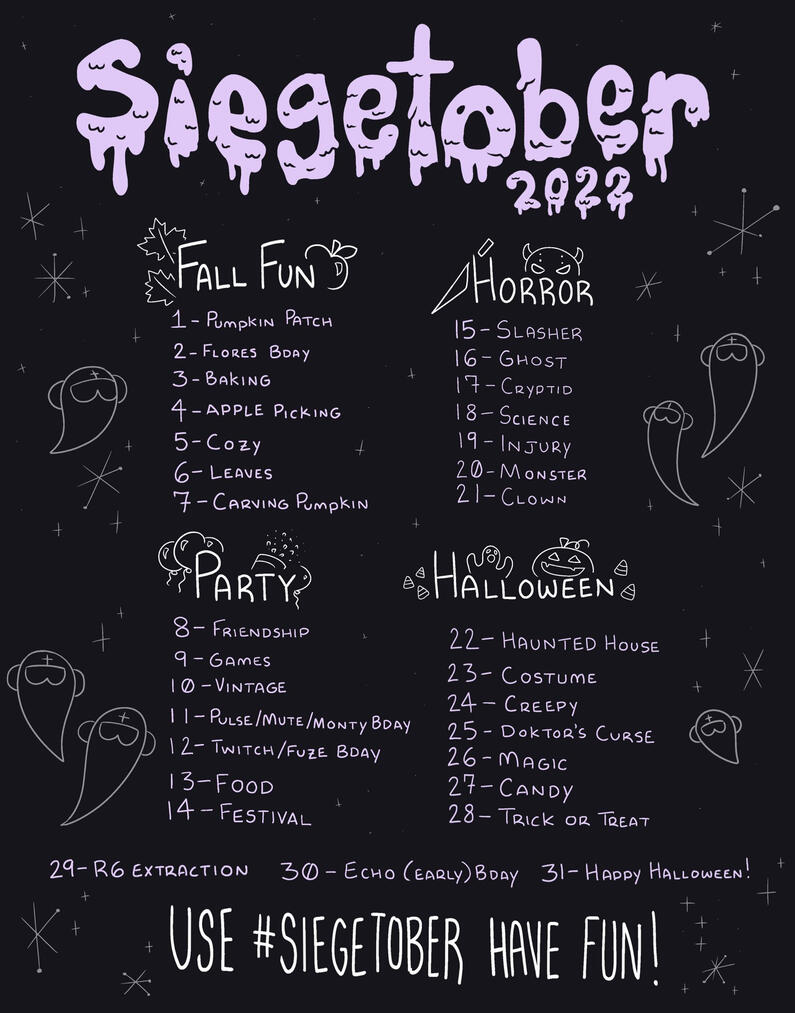 Siegetober
2022
FALL FUN
1 - Pumpkin PATCH
2 - FLORES BDAY
3 - BAKING
4 - APPLE PICKING
5 - COZY
6 - LEAVES
7 - CARVING PUMPKIN
PARTY
8 - FRIENDSHIP
9 - GAMES
10 - VINTAGE
11 - PULSE/MUTE/MONTY BDAY
12 - TWITCH/FUZE BDAY
13 - FOOD
14 - FESTIVAL
HORROR
15 - SLASHER
16 - GHOST
17 - CRYPTID
18 - SCIENCE
19 - INJURY
20 - MONSTER
21 - CLOWN
HALLOWEEN
22 - HAUNTED HOUSE
23 - COSTUME
24 - CREEPY
25 - DOKTOR'S CURSE
26 - MAGIC
27 - CANDY
28 - TRICK OR TREAT
29 - R6 EXTRACTION 30 - ECHO (EARLY) BDAY 31 - HAPPY HALLOWEEN!
USE #SIEGETOBER HAVE FUN!